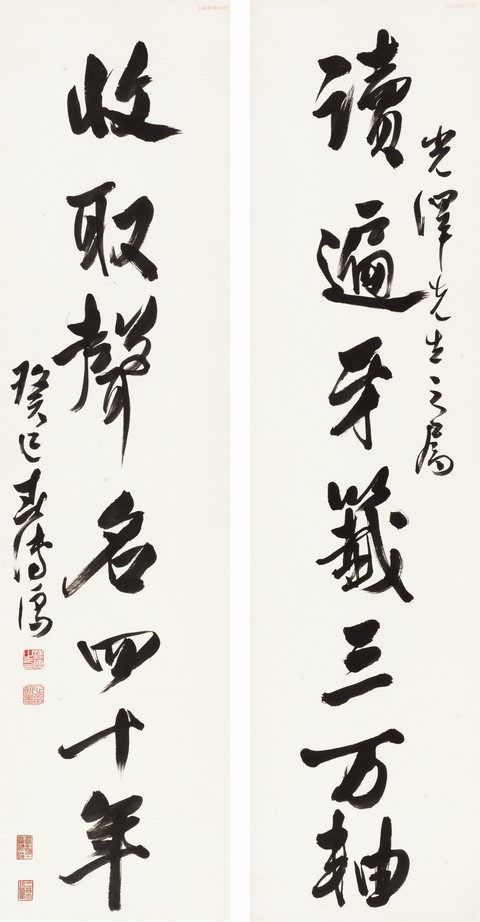 光澤先生之屬
讀遍牙籤三万軸
收取聲名四十年
癸巳春溥儒